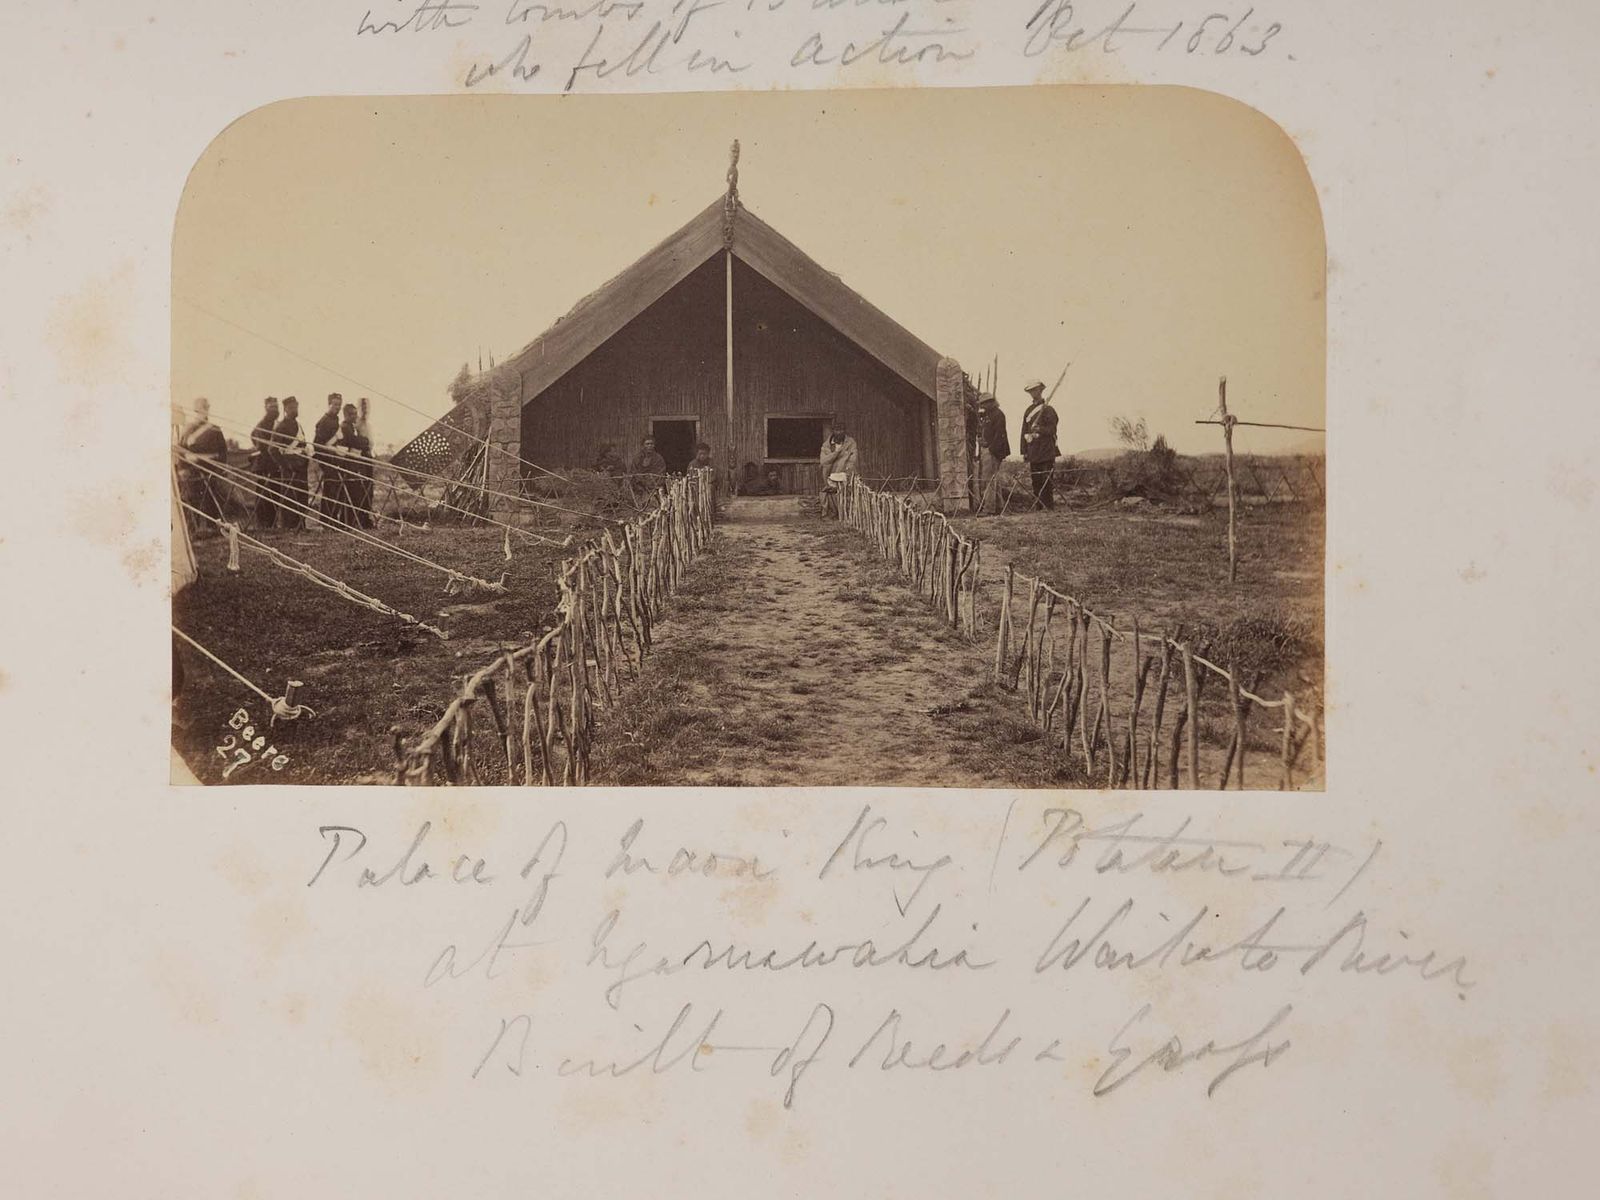 with tombs of
who fell in action Oct 1863.
Beere
27
Palace of Maori King (Potatau II)
at Ngaruawahia Waikato River.
Built of Reeds & Grass